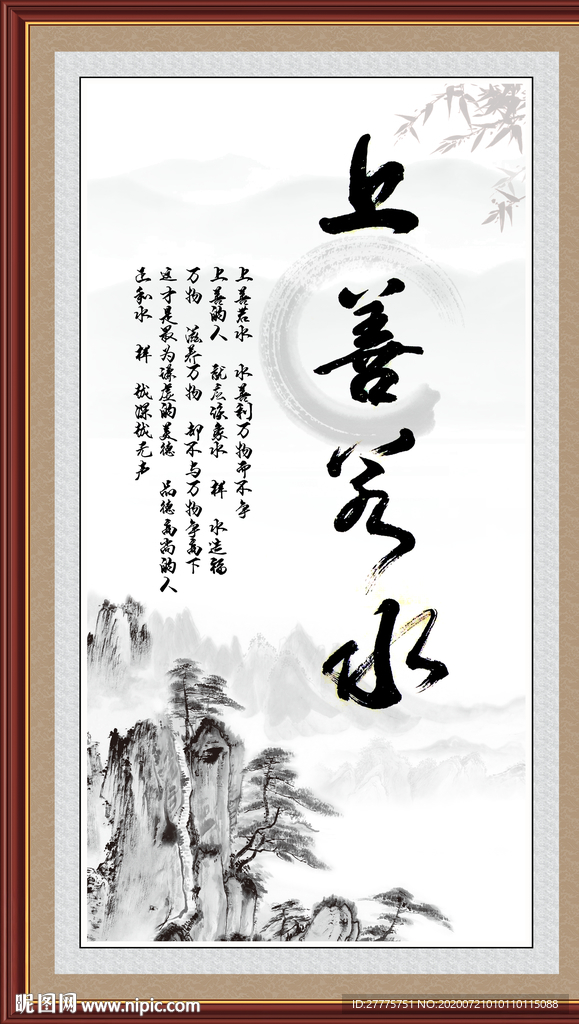 上善若水
上善若水 水善利万物而不争
上善的人 就应该象水 样 水造福
万物 滋养万物 却不与万物争高下
这才是最为谦虚的美德 品德高尚的人
正和水 样 越深越无声
昵图网 www.nipic.com
ID:27775751 NO.20200721010110115088